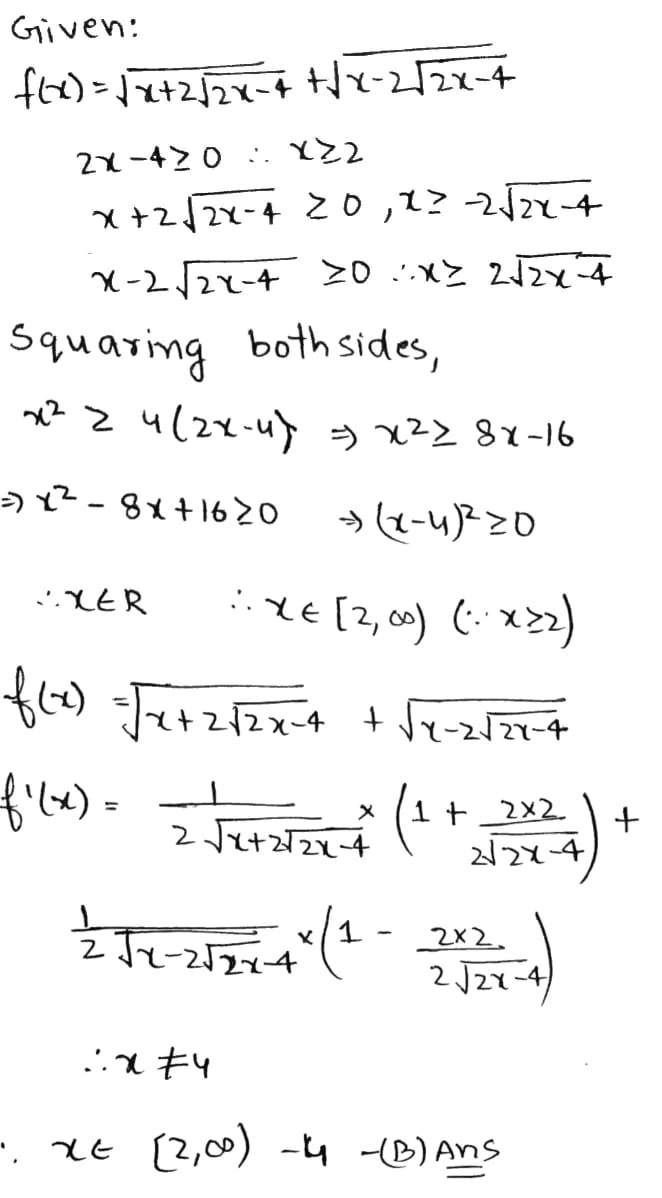 Given:
f(x) = √(x+2√(2x-4)) + √(x-2√(2x-4))
2x-4 ≥ 0 ∴ x≥2
x+2√(2x-4) ≥ 0 , x ≥ -2√(2x-4)
x-2√(2x-4) ≥0 ∴ x≥ 2√(2x-4)
Squaring both sides,
x² ≥ 4(2x-4) ⇒ x² ≥ 8x-16
⇒ x² - 8x+16≥0 → (x-4)² ≥0
∴ x∈R ∴ x∈ [2, ∞) (∵ x≥2)
f(x) = √(x+2√(2x-4)) + √(x-2√(2x-4))
f'(x) = 1/(2√(x+2√(2x-4))) × (1 + 2×2/(2√(2x-4))) +
1/(2√(x-2√(2x-4))) × (1 - 2×2/(2√(2x-4)))
∴ x ≠ 4
∴ x∈ [2,∞) -4 -(B) Ans